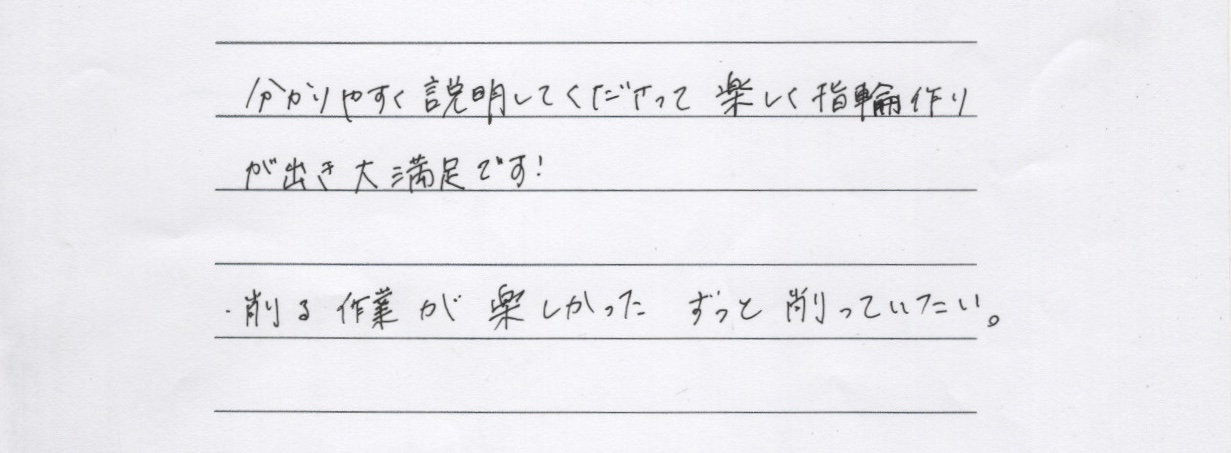 分かりやすく説明してくださって楽しく指輪作り
が出き大満足です!
・削る作業が楽しかった ずっと削っていたい。